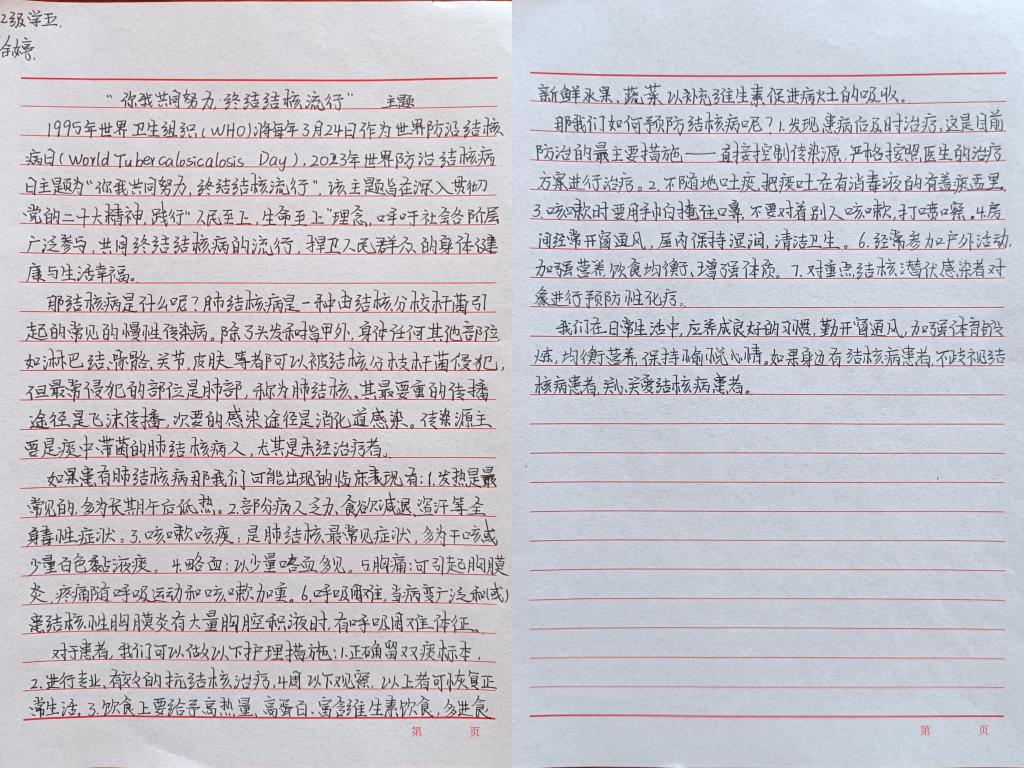 2级学五.
余婷.
“你我共同努力 终结结核流行” 主题
1995年世界卫生组织(WHO)将每年3月24日作为世界防治结核
病日(World Tubercalosicalosis Day), 2023年世界防治结核病
日主题为“你我共同努力, 终结结核流行”, 该主题旨在深入贯彻
党的二十大精神, 践行“人民至上, 生命至上”理念, 呼吁社会各阶层
广泛参与, 共同终结结核病的流行, 捍卫人民群众的身体健
康与生活幸福。
那结核病是什么呢? 肺结核病是一种由结核分枝杆菌引
起的常见的慢性传染病。除了头发和指甲外, 身体任何其他部位
如淋巴结、骨骼、关节、皮肤、等者都可以被结核分枝杆菌侵犯,
但最常侵犯的部位是肺部, 称为肺结核。其最要重的传播
途径是飞沫传播, 次要的感染途径是消化道感染。传染源主
要是痰中带菌的肺结核病人, 尤其是未经治疗者。
如果患有肺结核病那我们可能出现的临床表现有: 1.发热是最
常见的, 多为长期午后低热。2.部份病人乏力、食欲减退、盗汗等全
身毒性症状。3.咳嗽咳痰: 是肺结核最常见症状, 多为干咳或
少量白色黏液痰。 4.咯血: 以少量咯血多见。5.胸痛: 可引起胸膜
炎, 疼痛随呼吸运动和咳嗽加重。6.呼吸困难, 当病变广泛和(或)
患结核性胸膜炎有大量胸腔积液时, 有呼吸困难体征。
对于患者, 我们可以做以下护理措施: 1.正确留取痰标本,
2.进行专业、有效的抗结核治疗, 4周以下观察, 以上者可恢复正
常生活。3.饮食上要给予高热量、高蛋白、富含维生素饮食, 多进食
新鲜水果、蔬菜 以补充维生素, 促进病灶的吸收。
那我们如何预防结核病呢? 1.发现患病后及时治疗, 这是目前
防治的最主要措施——直接控制传染源, 严格按照医生的治疗
方案进行治疗。2.不随地吐痰, 把痰吐在有消毒液的有盖痰盂里.
3.咳嗽时要用手帕掩住口鼻, 不要对着别人咳嗽, 打喷嚏。4.房
间经常开窗通风, 屋内保持湿润, 清洁卫生。6.经常参加户外活动,
加强营养, 饮食均衡, 增强体质。7.对重点结核潜伏感染者对
象进行预防性化疗。
我们在日常生活中, 应养成良好的习惯, 勤开窗通风, 加强体育锻
炼, 均衡营养, 保持愉悦心情。如果身边有结核病患者, 不歧视结
核病患者, 关爱结核病患者。
第 页
第 页